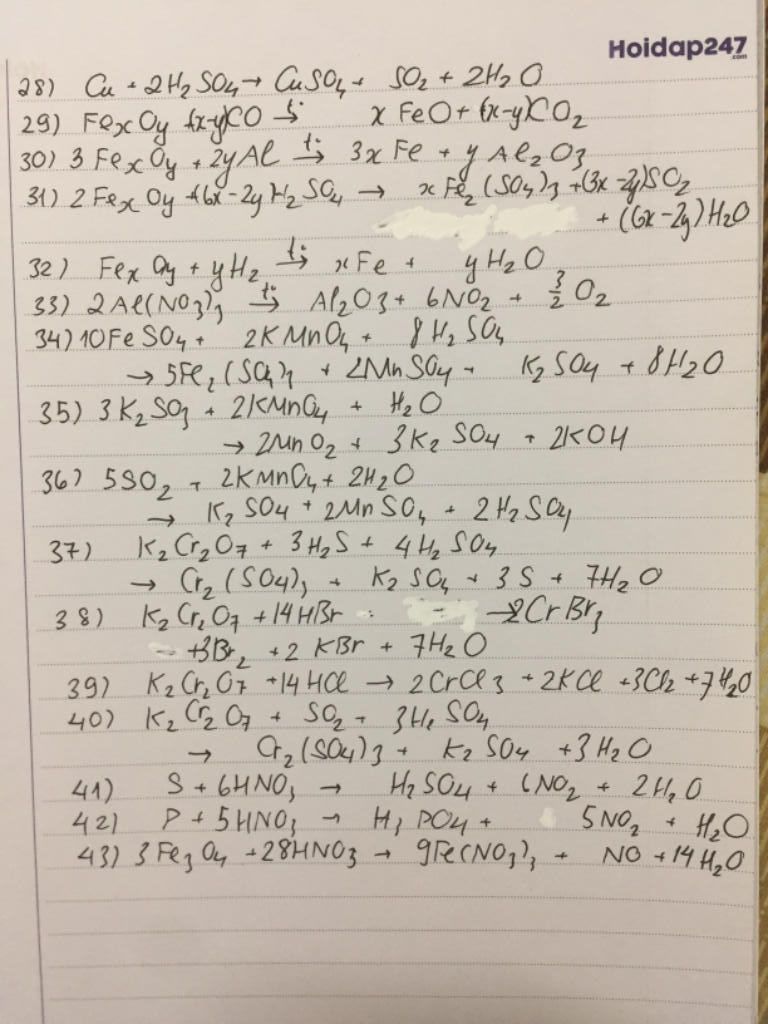 Hoidap247
.com
28) Cu + 2H2SO4 → CuSO4 + SO2 + 2H2O
29) FexOy +(x-y)CO t°→ x FeO + (x-y)CO2
30) 3 FexOy + 2yAl t°→ 3x Fe + y Al2O3
31) 2 FexOy +(6x-2y)H2SO4 → xFe2(SO4)3 +(3x-2y)SO2
+ (6x-2y)H2O
32) FexOy + yH2 t°→ xFe + yH2O
33) 2Al(NO3)3 t°→ Al2O3 + 6NO2 + 3/2 O2
34) 10FeSO4 + 2KMnO4 + 8H2SO4
→ 5Fe2(SO4)3 + 2MnSO4 + K2SO4 + 8H2O
35) 3K2SO3 + 2KMnO4 + H2O
→ 2MnO2 + 3K2SO4 + 2KOH
36) 5SO2 + 2KMnO4 + 2H2O
→ K2SO4 + 2MnSO4 + 2H2SO4
37) K2Cr2O7 + 3H2S + 4H2SO4
→ Cr2(SO4)3 + K2SO4 + 3S + 7H2O
38) K2Cr2O7 + 14HBr → 2CrBr3
+3Br2 + 2KBr + 7H2O
39) K2Cr2O7 +14HCl → 2CrCl3 + 2KCl +3Cl2 +7H2O
40) K2Cr2O7 + SO2 + 3H2SO4
→ Cr2(SO4)3 + K2SO4 +3H2O
41) S + 6HNO3 → H2SO4 + 6NO2 + 2H2O
42) P + 5HNO3 → H3PO4 + 5NO2 + H2O
43) 3Fe3O4 +28HNO3 → 9Fe(NO3)3 + NO +14H2O